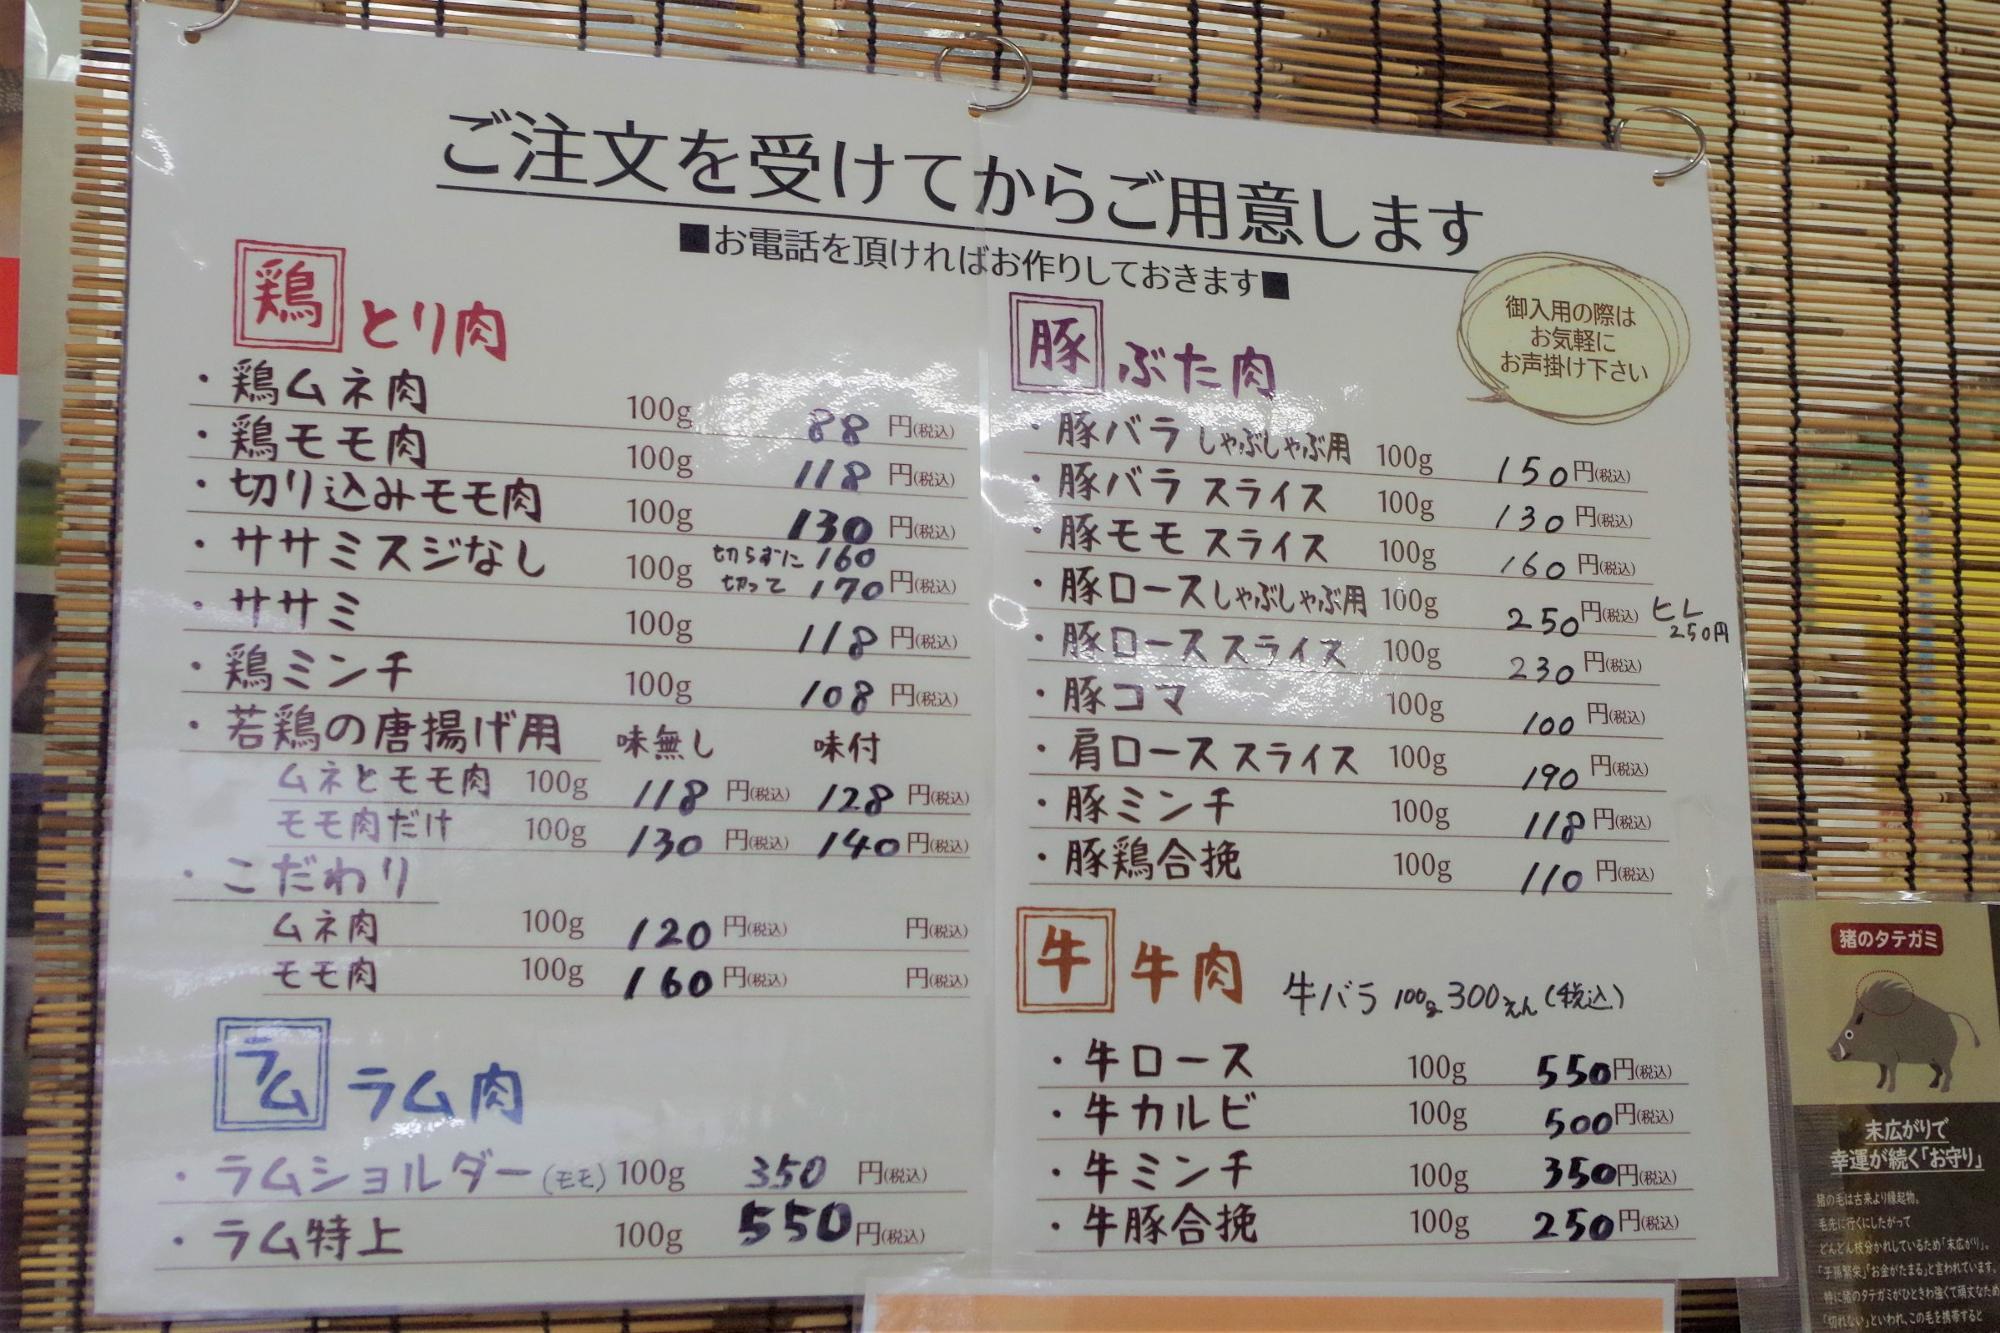 ご注文を受けてからご用意します
■お電話を頂ければお作りしておきます■
御入用の際は
お気軽に
お声掛け下さい
鶏 とり肉
・鶏ムネ肉 100g 88円(税込)
・鶏モモ肉 100g 118円(税込)
・切り込みモモ肉 100g 130円(税込)
・ササミスジなし 100g 切らずに160
切って170円(税込)
・ササミ 100g 118円(税込)
・鶏ミンチ 100g 108円(税込)
・若鶏の唐揚げ用 味無し 味付
ムネとモモ肉 100g 118円(税込) 128円(税込)
モモ肉だけ 100g 130円(税込) 140円(税込)
・こだわり
ムネ肉 100g 120円(税込) 円(税込)
モモ肉 100g 160円(税込) 円(税込)
ラム ラム肉
・ラムショルダー(モモ) 100g 350円(税込)
・ラム特上 100g 550円(税込)
豚 ぶた肉
・豚バラ しゃぶしゃぶ用 100g 150円(税込)
・豚バラ スライス 100g 130円(税込)
・豚モモ スライス 100g 160円(税込)
・豚ロースしゃぶしゃぶ用 100g 250円(税込) ヒレ
250円
・豚ロース スライス 100g 230円(税込)
・豚コマ 100g 100円(税込)
・肩ロース スライス 100g 190円(税込)
・豚ミンチ 100g 118円(税込)
・豚鶏合挽 100g 110円(税込)
牛 牛肉 牛バラ 100g 300えん(税込)
・牛ロース 100g 550円(税込)
・牛カルビ 100g 500円(税込)
・牛ミンチ 100g 350円(税込)
・牛豚合挽 100g 250円(税込)
猪のタテガミ
末広がりで
幸運が続く「お守り」
猪の毛は古来より縁起物。
毛先に行くにしたがって
どんどん枝分かれしているため「末広がり」。
「子孫繁栄」「お金がたまる」と言われています。
特に猪のタテガミがひときわ強くて頑丈なため
「切れない」といわれ、この毛を携帯すると